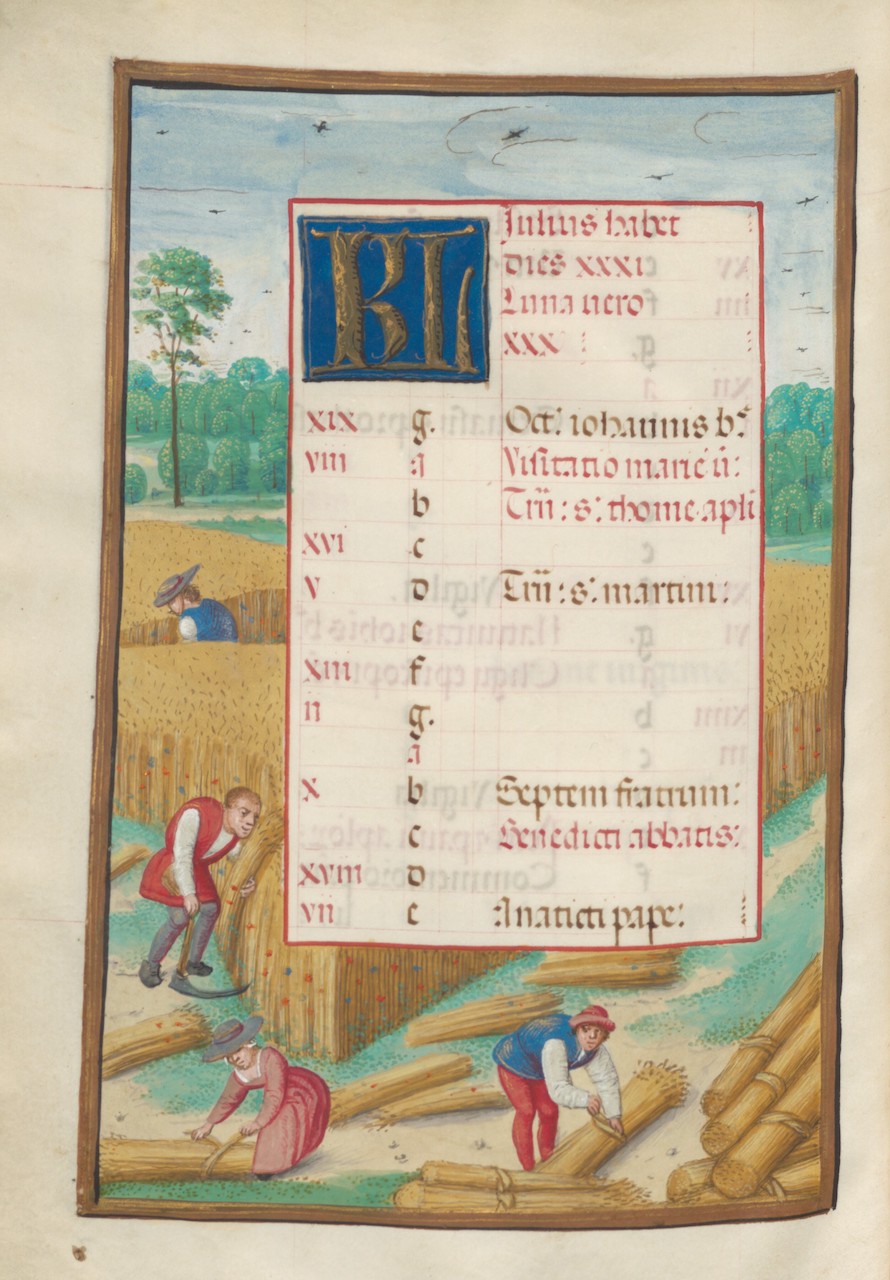 KL Julius habet
dies xxxi
Luna vero
xxx
xix g. Oct: iohannis b:
viii a Visitatio marie v:
b Trn: s: thome apli
xvi c
v d Trn: s: martini:
e
xiii f
ii g.
a
x b Septem fratrum:
c Benedicti abbatis:
xviii d
vii e Anacleti pape: